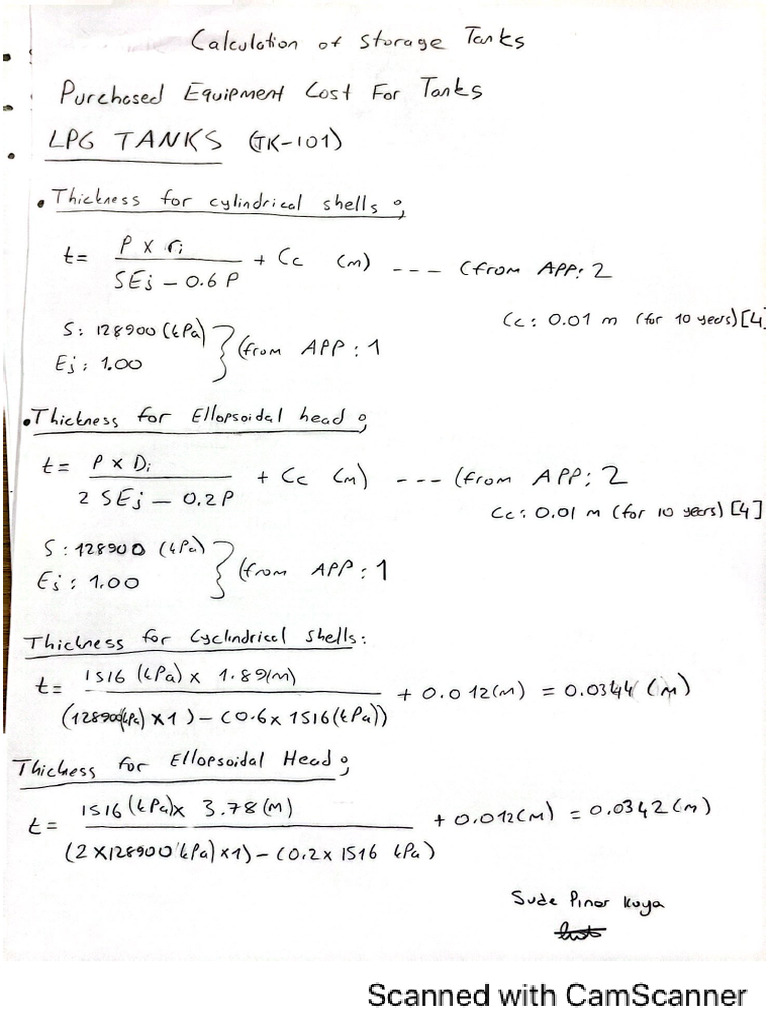 Calculation of Storage Tanks
Purchased Equipment Cost For Tanks
LPG TANKS (TK-101)
• Thickness for cylindrical shells;
t = P x ri / SEj - 0.6 P + Cc (m) --- (from APP: 2
Cc: 0.01 m (for 10 years) [4]
S: 128900 (kPa)
Ej: 1.00 } (from APP: 1
• Thickness for Ellopsoidal head;
t = P x Di / 2 SEj - 0.2P + Cc (m) --- (from APP: 2
Cc: 0.01 m (for 10 years) [4]
S: 128900 (kPa)
Ej: 1.00 } (from APP: 1
Thickness for Cyclindrical Shells:
t = 1516 (kPa) x 1.89(m) / (128900(kPa) x 1) - (0.6 x 1516(kPa)) + 0.012(m) = 0.0344 (m)
Thickness for Ellopsoidal Head;
t = 1516 (kPa) x 3.78 (m) / (2 x 128900 (kPa) x 1) - (0.2 x 1516 kPa) + 0.012(m) = 0.0342(m)
Sude Pinar Kaya
Scanned with CamScanner